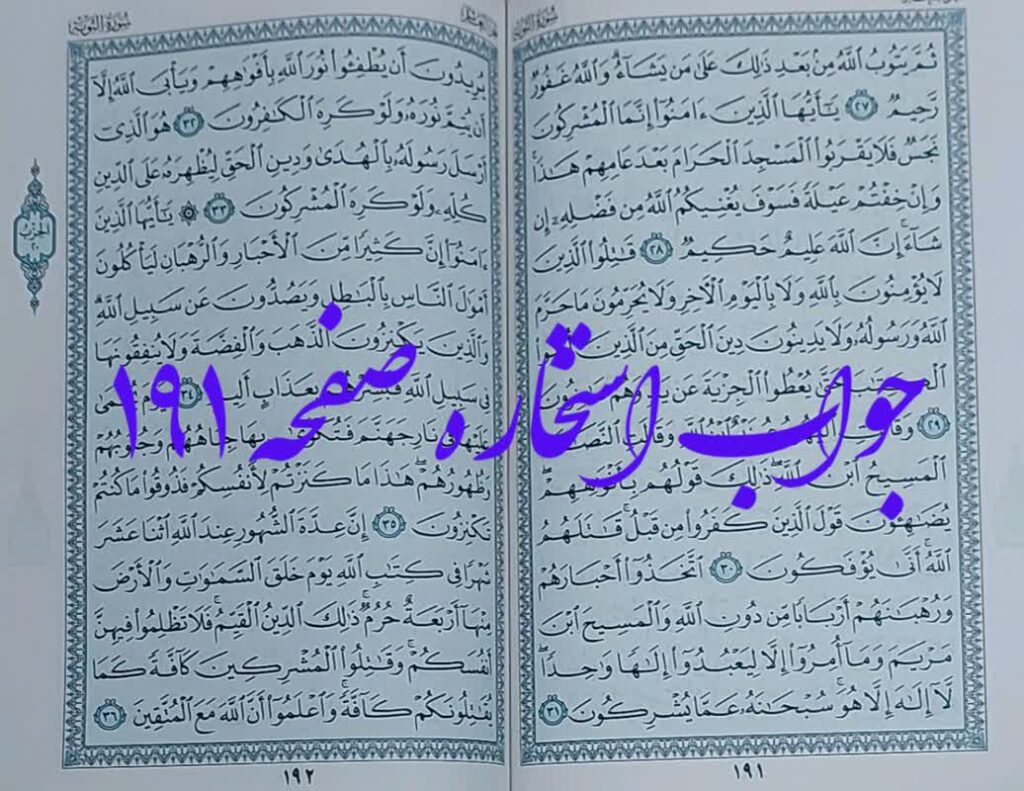 ثُمَّ يَتُوبُ ٱللَّهُ مِنۢ بَعْدِ ذَٰلِكَ عَلَىٰ مَن يَشَآءُ وَٱللَّهُ غَفُورٌ
رَّحِيمٌ ٢٧ يَٰٓأَيُّهَا ٱلَّذِينَ ءَامَنُوٓا۟ إِنَّمَا ٱلْمُشْرِكُونَ
نَجَسٌ فَلَا يَقْرَبُوا۟ ٱلْمَسْجِدَ ٱلْحَرَامَ بَعْدَ عَامِهِمْ هَٰذَا
وَإِنْ خِفْتُمْ عَيْلَةً فَسَوْفَ يُغْنِيكُمُ ٱللَّهُ مِن فَضْلِهِۦٓ إِن
شَآءَ إِنَّ ٱللَّهَ عَلِيمٌ حَكِيمٌ ٢٨ قَٰتِلُوا۟ ٱلَّذِينَ
لَا يُؤْمِنُونَ بِٱللَّهِ وَلَا بِٱلْيَوْمِ ٱلْأَخِرِ وَلَا يُحَرِّمُونَ مَا حَرَّمَ
ٱللَّهُ وَرَسُولُهُۥ وَلَا يَدِينُونَ دِينَ ٱلْحَقِّ مِنَ ٱلَّذِينَ
يُعْطُوا۟ ٱلْجِزْيَةَ عَن
٢٩ ٱللَّهِ وَقَالَتِ
ٱلْمَسِيحُ ٱبْنُ ٱللَّهِ ذَٰلِكَ قَوْلُهُم بِأَفْوَٰهِهِمْ
يُضَٰهِـُٔونَ قَوْلَ ٱلَّذِينَ كَفَرُوا۟ مِن قَبْلُ قَٰتَلَهُمُ
ٱللَّهُ أَنَّىٰ يُؤْفَكُونَ ٣٠ ٱتَّخَذُوٓا۟ أَحْبَارَهُمْ
وَرُهْبَٰنَهُمْ أَرْبَابًا مِّن دُونِ ٱللَّهِ وَٱلْمَسِيحَ ٱبْنَ
مَرْيَمَ وَمَآ أُمِرُوٓا۟ إِلَّا لِيَعْبُدُوٓا۟ إِلَٰهًا وَٰحِدًا
لَّآ إِلَٰهَ إِلَّا هُوَ سُبْحَٰنَهُۥ عَمَّا يُشْرِكُونَ ٣١
١٩١
سُورَةُ التَّوْبَةِ
يُرِيدُونَ أَن يُطْفِـُٔوا۟ نُورَ ٱللَّهِ بِأَفْوَٰهِهِمْ وَيَأْبَى ٱللَّهُ إِلَّآ
أَن يُتِمَّ نُورَهُۥ وَلَوْ كَرِهَ ٱلْكَٰفِرُونَ ٣٢ هُوَ ٱلَّذِىٓ
أَرْسَلَ رَسُولَهُۥ بِٱلْهُدَىٰ وَدِينِ ٱلْحَقِّ لِيُظْهِرَهُۥ عَلَى ٱلدِّينِ
كُلِّهِۦ وَلَوْ كَرِهَ ٱلْمُشْرِكُونَ ٣٣ ۞ يَٰٓأَيُّهَا ٱلَّذِينَ
ءَامَنُوٓا۟ إِنَّ كَثِيرًا مِّنَ ٱلْأَحْبَارِ وَٱلرُّهْبَانِ لَيَأْكُلُونَ
أَمْوَٰلَ ٱلنَّاسِ بِٱلْبَٰطِلِ وَيَصُدُّونَ عَن سَبِيلِ ٱللَّهِ
وَٱلَّذِينَ يَكْنِزُونَ ٱلذَّهَبَ وَٱلْفِضَّةَ وَلَا يُنفِقُونَهَا
فِى سَبِيلِ ٱللَّهِ فَبَشِّرْهُم بِعَذَابٍ أَلِيمٍ ٣٤ يَوْمَ يُحْمَىٰ
عَلَيْهَا فِى نَارِ جَهَنَّمَ فَتُكْوَىٰ بِهَا جِبَاهُهُمْ وَجُنُوبُهُمْ
وَظُهُورُهُمْ هَٰذَا مَا كَنَزْتُمْ لِأَنفُسِكُمْ فَذُوقُوا۟ مَا كُنتُمْ
تَكْنِزُونَ ٣٥ إِنَّ عِدَّةَ ٱلشُّهُورِ عِندَ ٱللَّهِ ٱثْنَا عَشَرَ
شَهْرًا فِى كِتَٰبِ ٱللَّهِ يَوْمَ خَلَقَ ٱلسَّمَٰوَٰتِ وَٱلْأَرْضَ
مِنْهَآ أَرْبَعَةٌ حُرُمٌ ذَٰلِكَ ٱلدِّينُ ٱلْقَيِّمُ فَلَا تَظْلِمُوا۟ فِيهِنَّ
أَنفُسَكُمْ وَقَٰتِلُوا۟ ٱلْمُشْرِكِينَ كَآفَّةً كَمَا
يُقَٰتِلُونَكُمْ كَآفَّةً وَٱعْلَمُوٓا۟ أَنَّ ٱللَّهَ مَعَ ٱلْمُتَّقِينَ ٣٦
١٩٢
الحزب
٢٠
جواب استخاره صفحه ۱۹۱